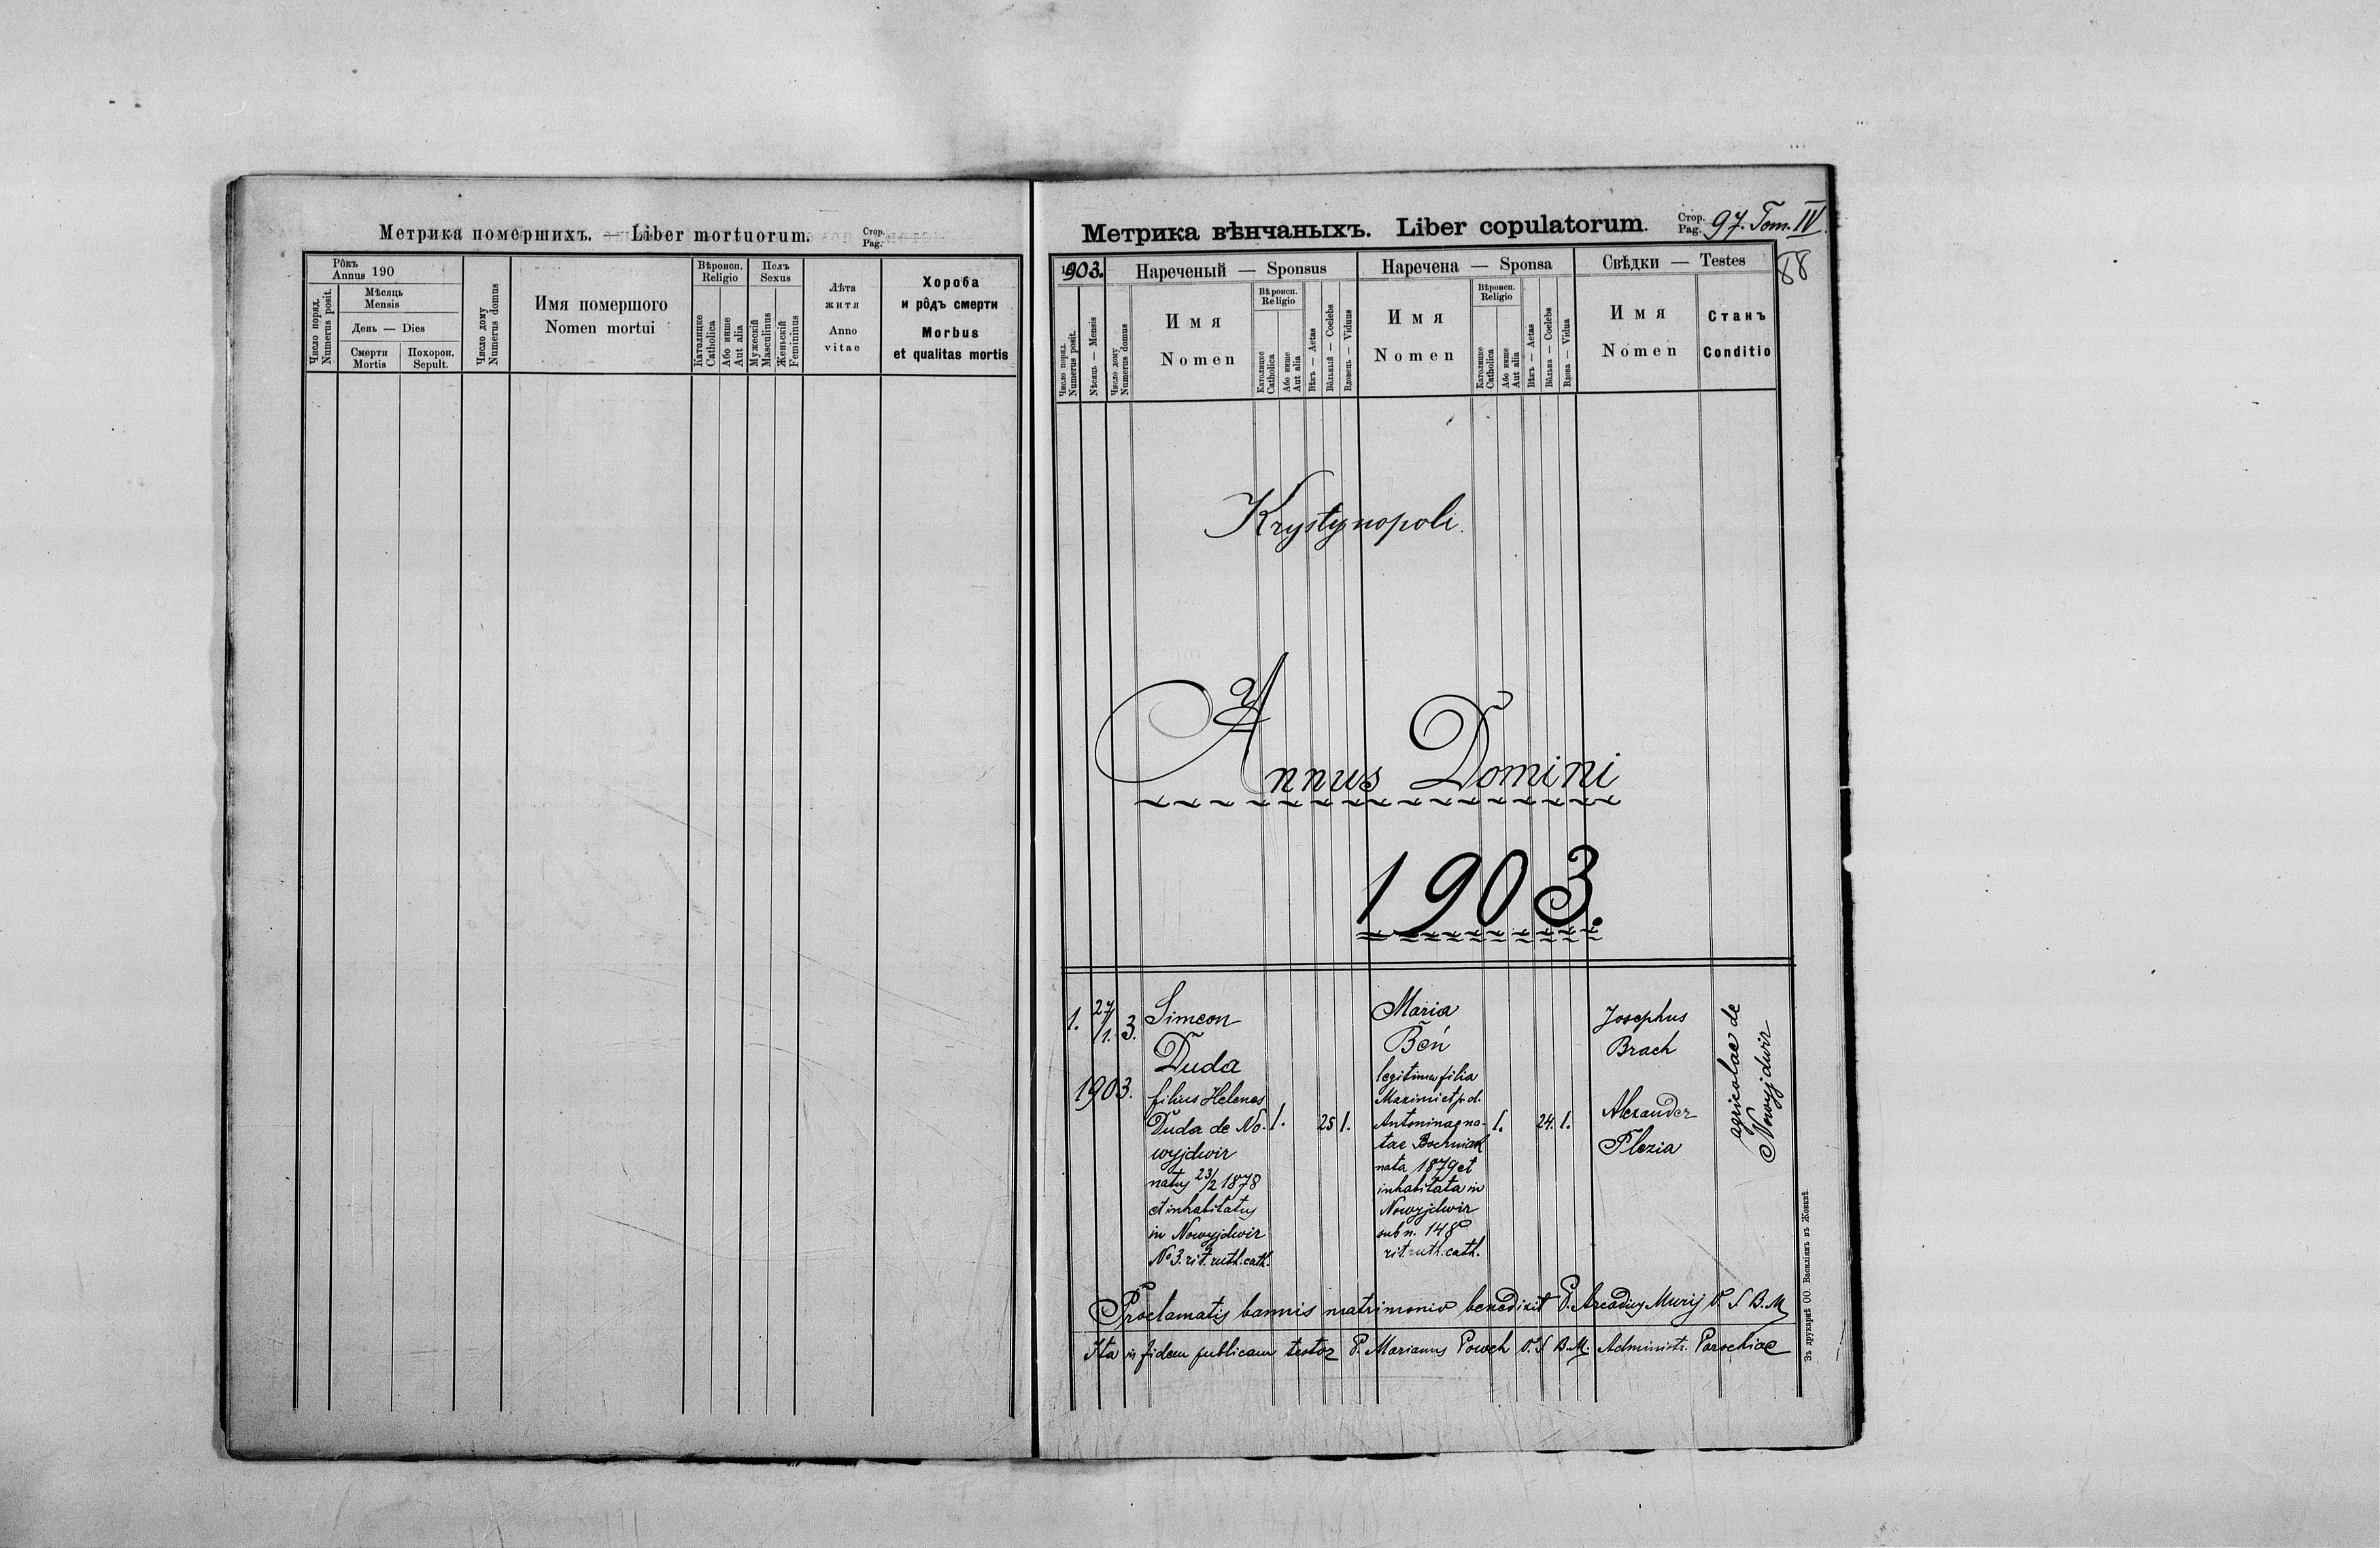 Метрика помершихъ. — Liber mortuorum.
Стор.
Pag.
Рôкъ
Annus 190
Число поряд.
Numerus posit.
Мѣсяць
Mensis
День — Dies
Смерти
Mortis
Похорон.
Sepult.
Число дому
Numerus domus
Имя помершого
Nomen mortui
Вѣроисп.
Religio
Католицке
Catholica
Або инше
Aut alia
Полъ
Sexus
Мужескій
Masculinus
Женьскій
Femininus
Лѣта
житя
Anno
vitae
Хороба
и рôдъ смерти
Morbus
et qualitas mortis
Метрика вѣнчаныхъ. Liber copulatorum.
Стор.
Pag. 97. Tom. IV.
88
1903.
Нареченый — Sponsus
Наречена — Sponsa
Свѣдки — Testes
Число поряд.
Numerus posit.
Мѣсяць — Mensis
Число дому
Numerus domus
Имя
Nomen
Вѣроисп.
Religio
Католицке
Catholica
Або инше
Aut alia
Вѣкъ — Aetas
Вôльный — Coelebs
Вдовець — Viduus
Имя
Nomen
Вѣроисп.
Religio
Католицке
Catholica
Або инше
Aut alia
Вѣкъ — Aetas
Вôльна — Coelebs
Вдова — Vidua
Имя
Nomen
Станъ
Conditio
Krystynopoli.
Annus Domini
1903.
1.
27/1.
1903.
3.
Simeon
Duda
filius Helenes
Duda de No-
wyjdwir
natus 23/2 1878
et inhabitatus
in Nowyjdwir
No 3. rit. ruth. cath.
1.
25
1.
Maria
Beń
legitima filia
Maximi et p.d.
Antoninae na-
tae Bochniak
nata 1879 et
inhabitata in
Nowyjdwir
sub n. 148
rit. ruth. cath.
1.
24.
1.
Josephus
Brach
Alexander
Plezia
agricolae de
Nowyjdwir
Proclamatis bannis matrimonio benedixit P. Arcadius Muryj O. S. B. M.
Ita in fidem publicam testor P. Marianus Powch O. S. B. M. Administr. Parochiae
Зъ друкарнѣ ОО. Василіянъ въ Жовквѣ.